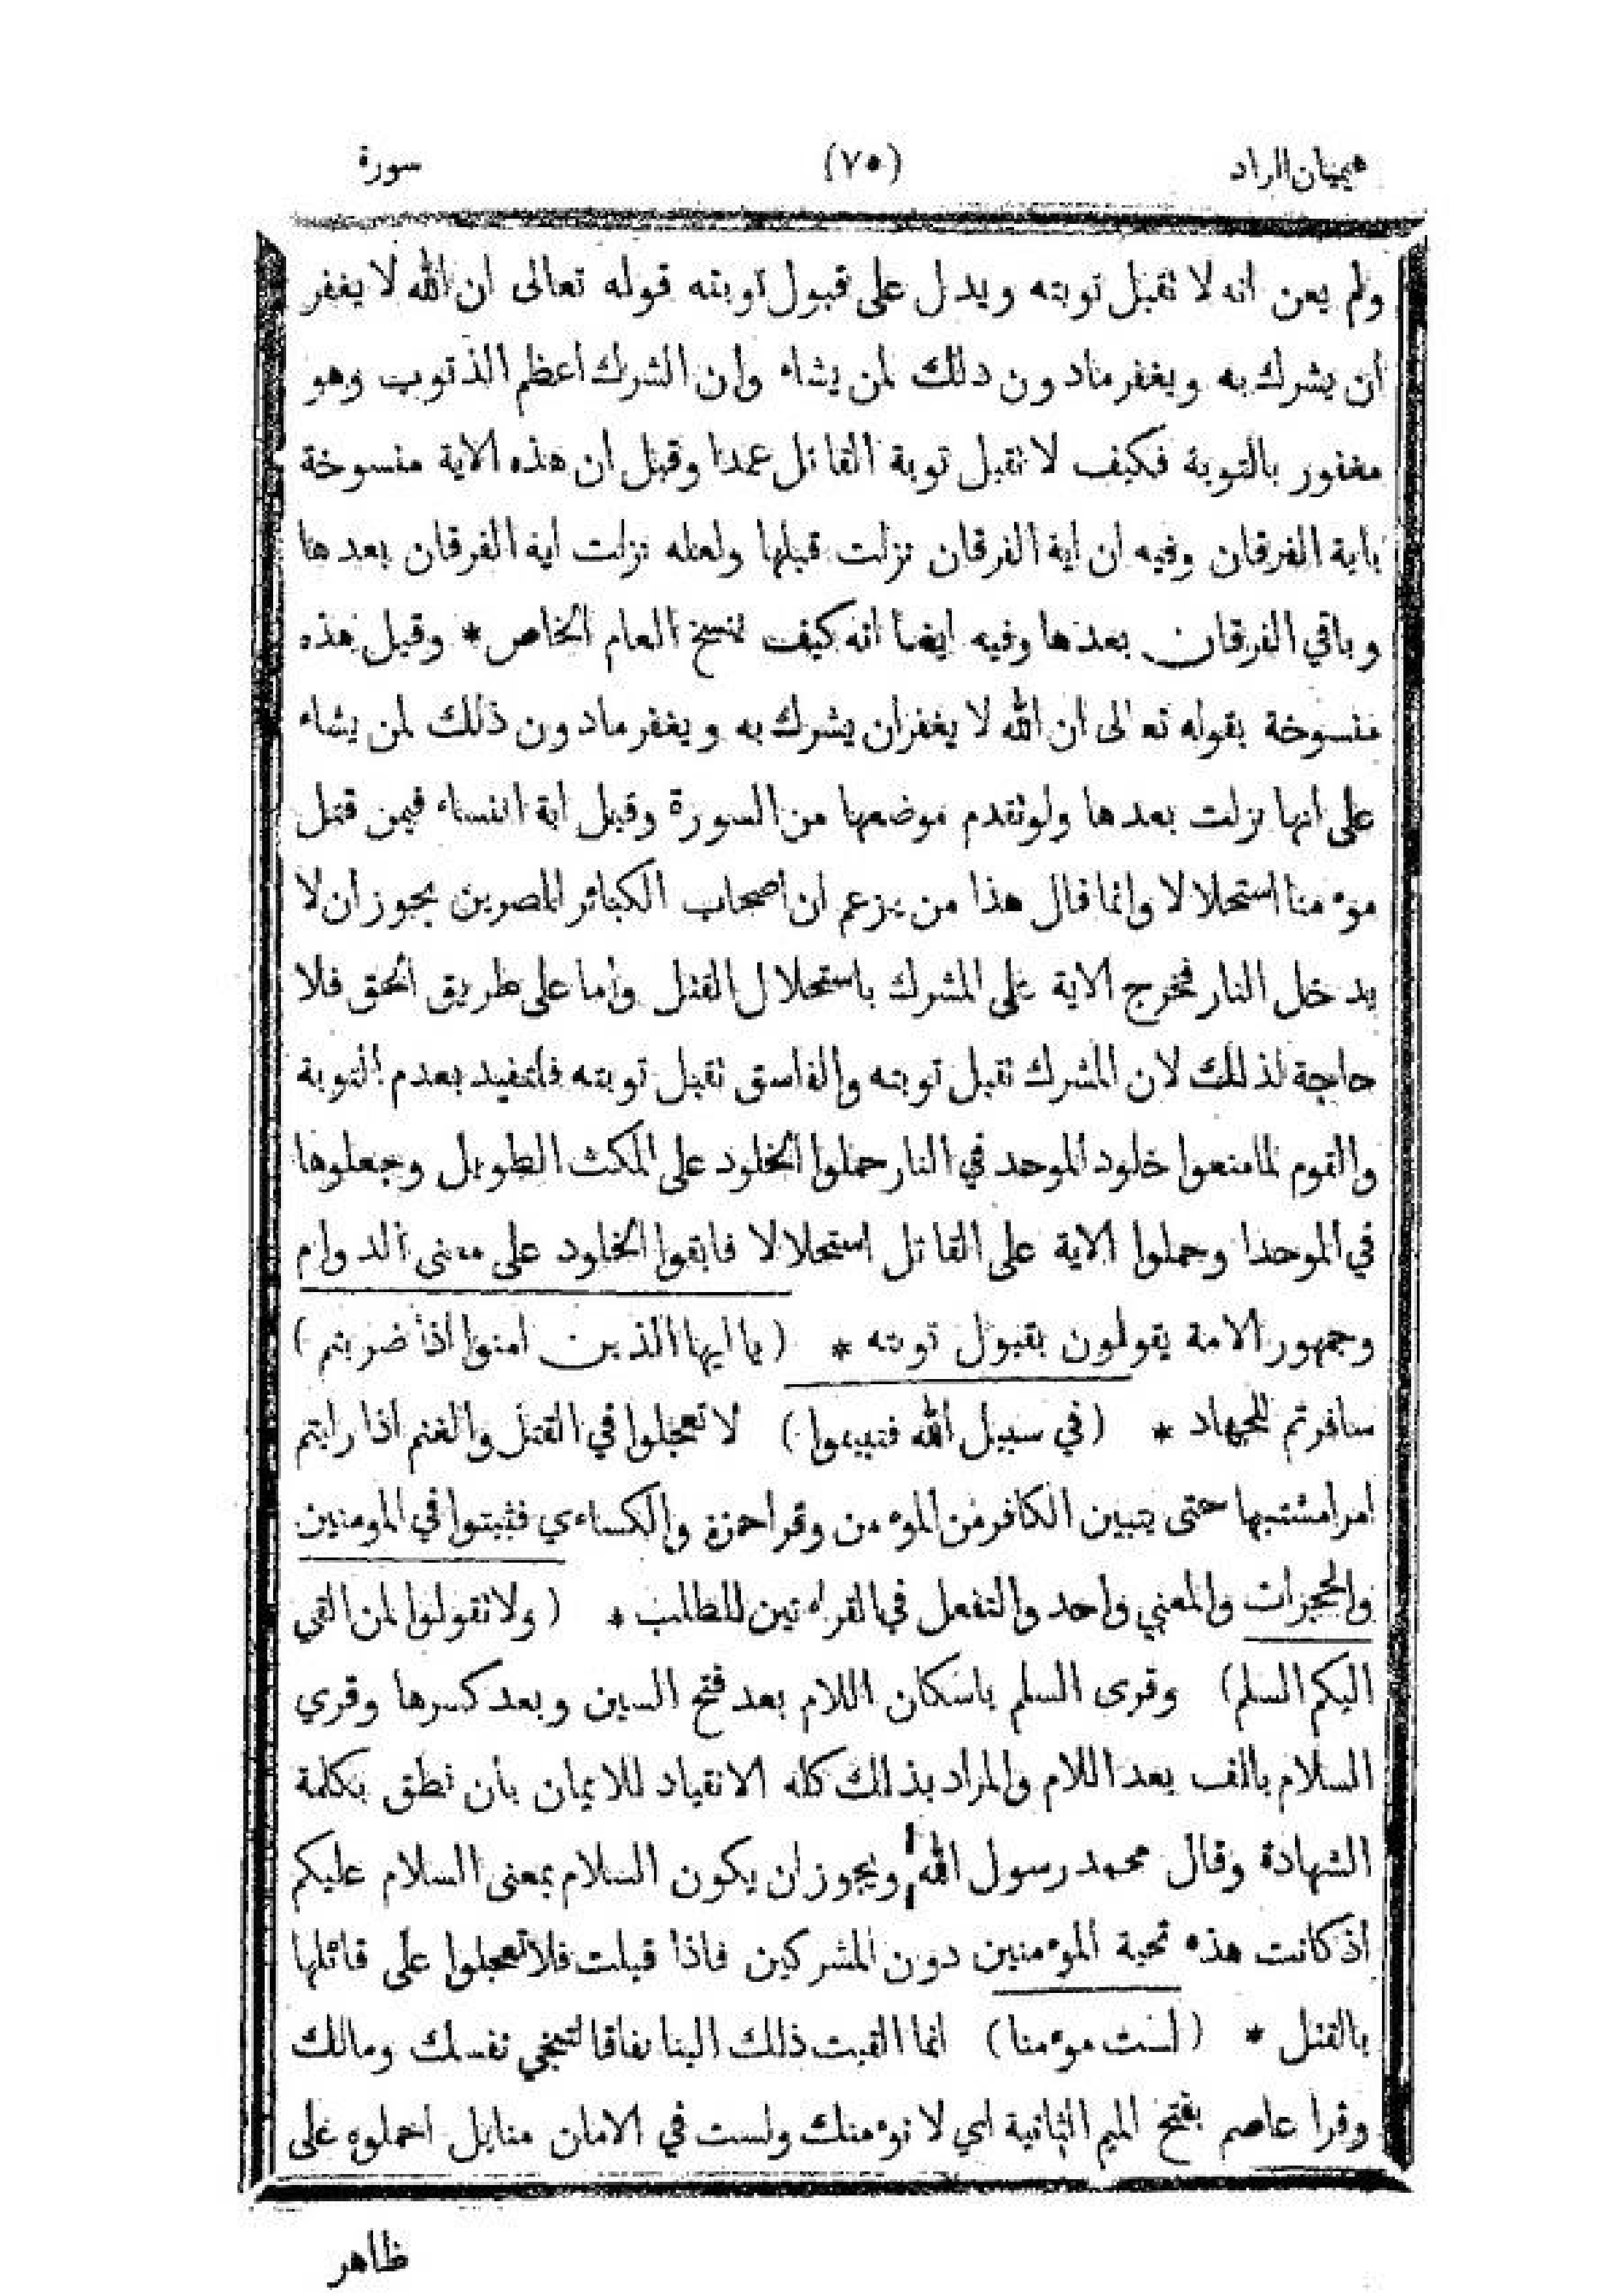 هيميان الزاد (٧٥) سورة
ولم يعن انه لا تقبل توبته ويدل على قبول توبته قوله تعالى ان الله لا يغفر
ان يشرك به ويغفر مادون ذلك لمن يشاء وان الشرك اعظم الذنوب وهو
مغفور بالتوبة فكيف لا تقبل توبة القاتل عمدا وقيل ان هذه الاية منسوخة
باية الفرقان وفيه ان اية الفرقان نزلت قبلها ولعله نزلت اية الفرقان بعدها
وباقي الفرقان بعدها وفيه ايضا انه كيف ينسخ العام الخاص * وقيل هذه
منسوخة بقوله تعالى ان الله لا يغفر ان يشرك به ويغفر مادون ذلك لمن يشاء
على انها نزلت بعدها ولو تقدم موضعها من السورة وقيل اية النساء فيمن قتل
موءمنا استحلالا وانما قال هذا من يزعم ان اصحاب الكبائر المصرين يجوز ان لا
يدخل النار فتخرج الاية على المشرك باستحلال القتل واما على طريق الحق فلا
حاجة لذلك لان المشرك تقبل توبته والفاسق تقبل توبته فلتفيد بعدم التوبة
والقوم لما منعوا خلود الموحد في النار حملوا الخلود على المكث الطويل وجعلوها
في الموحدا وحملوا الاية على القاتل استحلالا فابقوا الخلود على معنى الدوام
وجمهور الامة يقولون بقبول توبته * (يا ايها الذين امنوا اذا ضربتم)
سافرتم للجهاد * (في سبيل الله فتبينوا) لا تعجلوا في القتل والغنم اذا رايتم
امرا مشتبها حتى يتبين الكافر من الموءمن وقرا حمزة والكساءي فثبتوا في المومنين
والحجرات والمعنى واحد والتفعل في القراءتين للطلب * (ولا تقولوا لمن القى
اليكم السلم) وقرى السلم باسكان اللام بعد فتح السين وبعد كسرها وقري
السلام بالف بعد اللام والمراد بذلك كله الانقياد للايمان بأن نطق بكلمة
الشهادة وقال محمد رسول الله ويجوز ان يكون السلام بمعنى السلام عليكم
اذ كانت هذه تحية الموءمنين دون المشركين فاذا قيلت فلا تعجلوا على قائلها
بالقتل * (لست موءمنا) انما القيت ذلك الينا نفاقا لتنجي نفسك ومالك
وقرا عاصم بفتح الميم الثانية اي لا نوءمنك ولست في الامان منا بل احملوه على
ظاهر